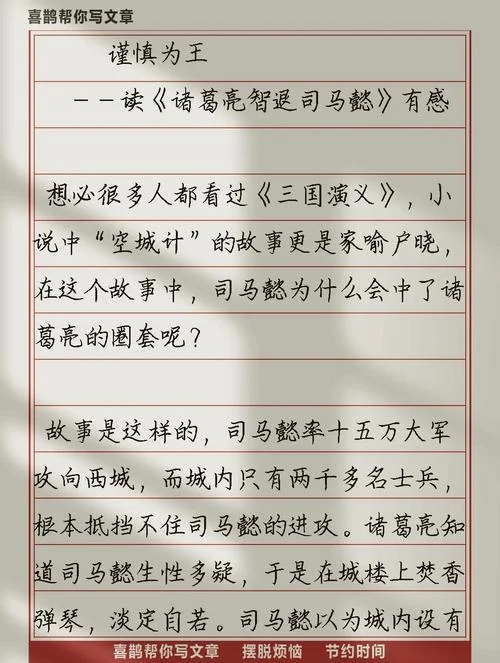 喜鹊帮你写文章
谨慎为王
——读《诸葛亮智退司马懿》有感
想必很多人都看过《三国演义》，小
说中“空城计”的故事更是家喻户晓，
在这个故事中，司马懿为什么会中了诸
葛亮的圈套呢？
故事是这样的，司马懿率十五万大军
攻向西城，而城内只有两千多名士兵，
根本抵挡不住司马懿的进攻。诸葛亮知
道司马懿生性多疑，于是在城楼上焚香
弹琴，淡定自若。司马懿以为城内设有
喜鹊帮你写文章 摆脱烦恼 节约时间